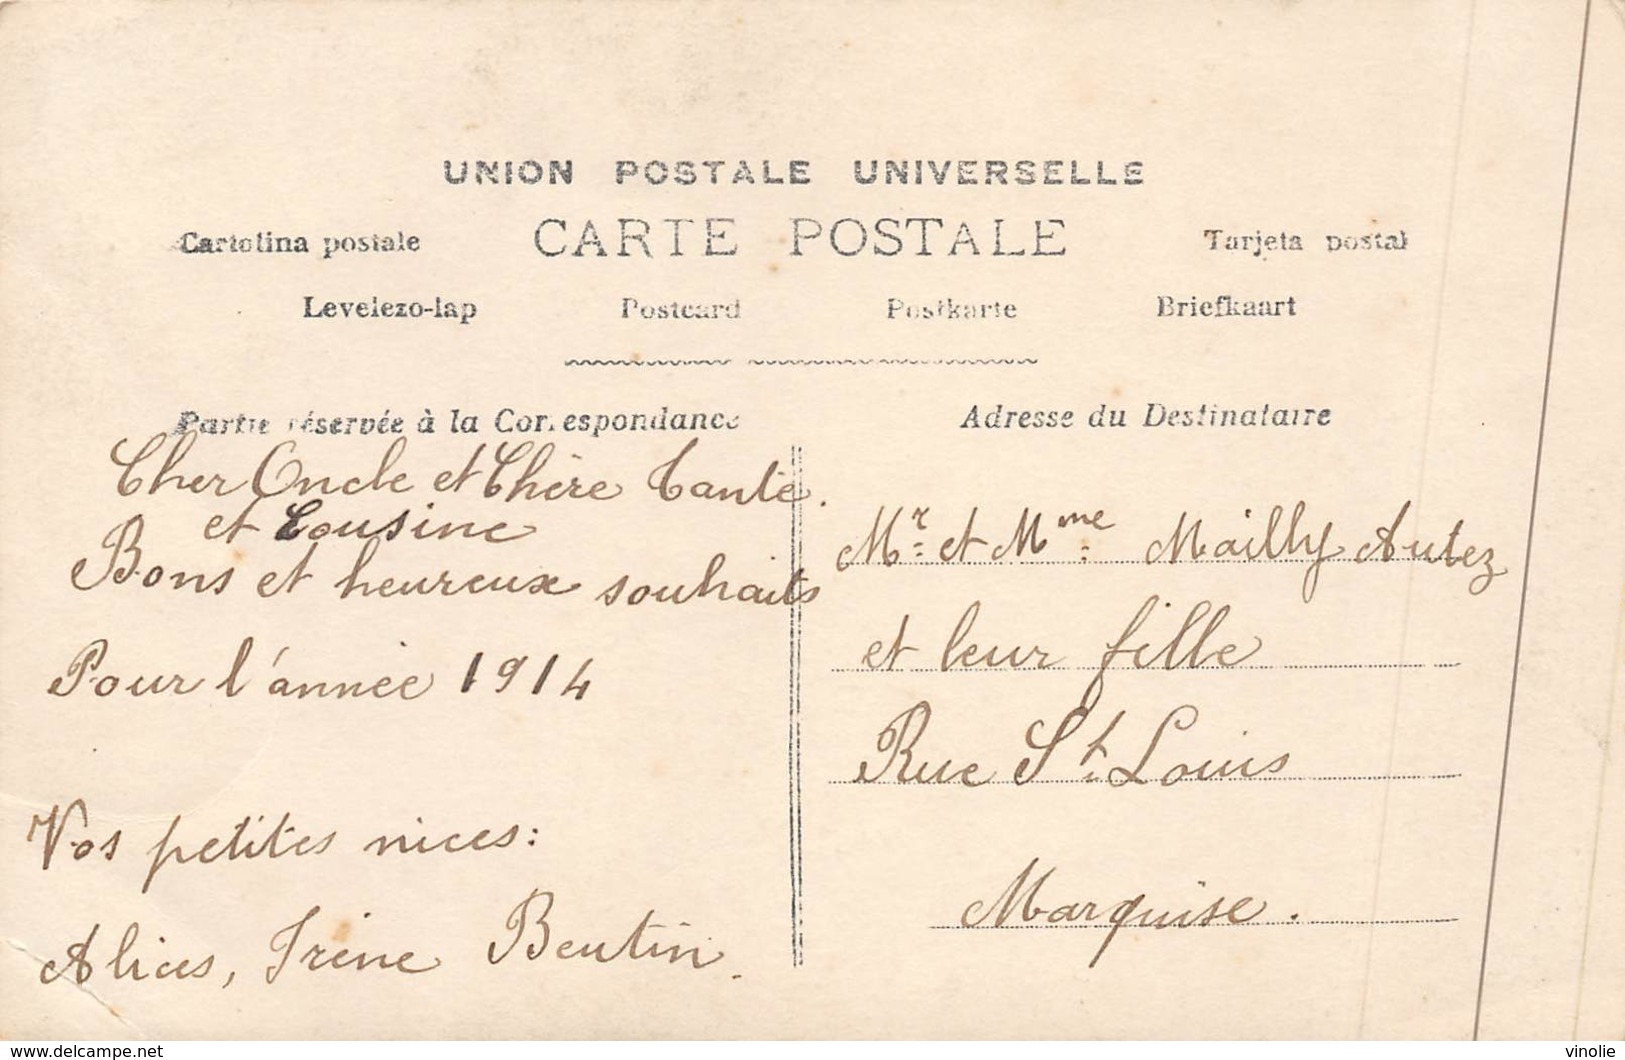 UNION POSTALE UNIVERSELLE
Cartolina postale CARTE POSTALE Tarjeta postal
Levelezo-lap Postcard Postkarte Briefkaart
Partie réservée à la Correspondance
Cher Oncle et Chère Tante.
et Cousine
Bons et heureux souhaits
Pour l'année 1914
Vos petites nices:
Alices, Irène Beutin.
Adresse du Destinataire
Mr. et Mme. Mailly Autez
et leur fille
Rue St. Louis
Marquise.
delcampe.net
vinolie